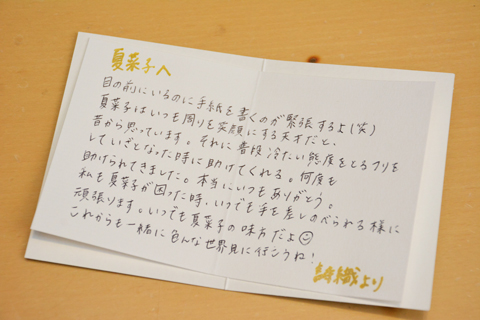 夏菜子へ
目の前にいるのに手紙を書くのが緊張するよ(笑)
夏菜子はいつも周りを笑顔にする天才だと、
昔から思っています。それに普段冷たい態度をとるフリを
していざとなった時に助けてくれる。何度も
助けられてきました。本当にいつもありがとう。
私も夏菜子が困った時、いつでも手を差しのべられる様に
頑張ります。いつでも夏菜子の味方だよ
これからも一緒に色んな世界見に行こうね!
詩織より